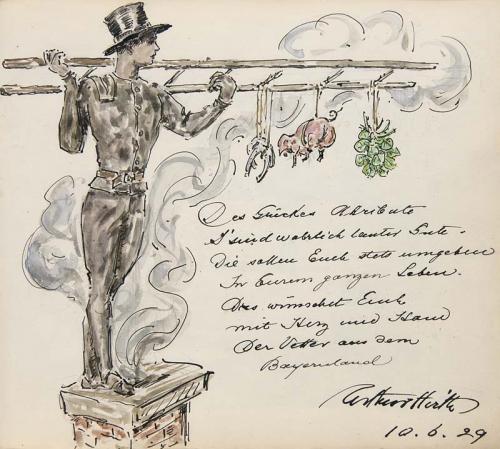 Des Glückes Attribute
S'sind wahrlich lauter Gute.
Die sollen Euch stets umgeben
In Eurem ganzen Leben.
Dies wünschet Euch
mit Herz und Hand
Der Vetter aus dem
Bayernland
Hirth
10.6.29